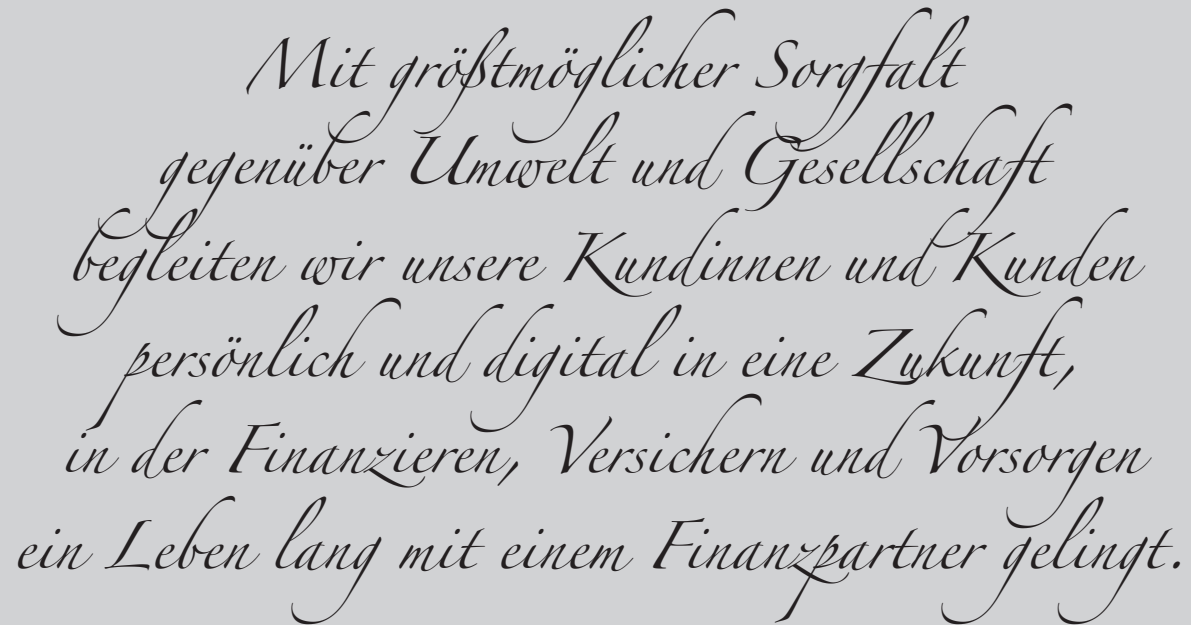 Mit größtmöglicher Sorgfalt
gegenüber Umwelt und Gesellschaft
begleiten wir unsere Kundinnen und Kunden
persönlich und digital in eine Zukunft,
in der Finanzieren, Versichern und Vorsorgen
ein Leben lang mit einem Finanzpartner gelingt.